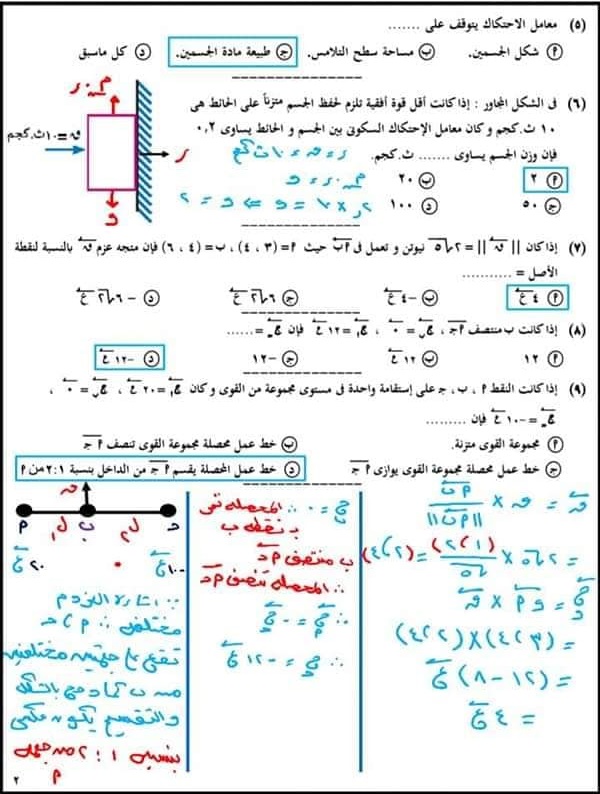 (٥) معامل الاحتكاك يتوقف على .......
أ شكل الجسمين. ب مساحة سطح التلامس. ج طبيعة مادة الجسمين. د كل ماسبق
(٦) فى الشكل المجاور : إذا كانت أقل قوة أفقية تلزم لحفظ الجسم متزناً على الحائط هى
١٠ ث.كجم و كان معامل الإحتكاك السكونى بين الجسم و الحائط يساوى ٠,٢
فإن وزن الجسم يساوى ....... ث.كجم.
أ ٢ ب ٢٠
ج ٥٠ د ١٠٠
ر = ن = ١٠ ث كجم
م س ر = و
٢, × ١٠ = و ⇐ و = ٢
م س ر
ق = ١٠ ث.كجم
ر
و
(٧) إذا كان || ق || = ٢√٥ نيوتن و تعمل فى أب حيث أ = (٣ ، ٤) ، ب = (٤ ، ٦) فإن متجه عزم ق بالنسبة لنقطة
الأصل = ...........
أ ٤ ع ب -٤ ع ج ٦√٢ ع د -٦√٢ ع
(٨) إذا كانت ب منتصف أج ، جـب = ٠ ، جـأ = ١٢ ع فإن جـج = ......
أ ١٢ ب ١٢ ع ج -١٢ د -١٢ ع
(٩) إذا كانت النقط أ ، ب ، جـ على إستقامة واحدة فى مستوى مجموعة من القوى و كان جـأ = ٢٠ ع ، جـب = ٠ ،
جـج = -١٠ ع فإن .........
أ مجموعة القوى متزنة. ب خط عمل محصلة مجموعة القوى تنصف أج
ج خط عمل محصلة مجموعة القوى يوازى أج د خط عمل المحصلة يقسم أج من الداخل بنسبة ٢:١ من أ
ق = ق × أب / ||أب||
= ٢√٥ × (١، ٢) / √٥ = (٢، ٤)
ج = وأ × ق
= (٣، ٤) × (٢، ٤)
= (١٢ - ٨) ع
= ٤ ع
ج = ٠ ∴ المحصله تمر
بنقطه ب
ب منتصف أحـ
∴ المحصله تنصف أحـ
∴ جـأ = - جـج
∴ جـج = -١٢ ع
ق
أ ل١ ب ل٢ حـ
٢٠ ع -١٠ ع
∵ اشارة العزوم
مختلفه ∴ أ ، حـ
تقع على جهتين مختلفتين
من ب كما موضح بالشكل
والتقسيم يكون عكسى
بنسبه ١ : ٢ من جهه
أ
٢